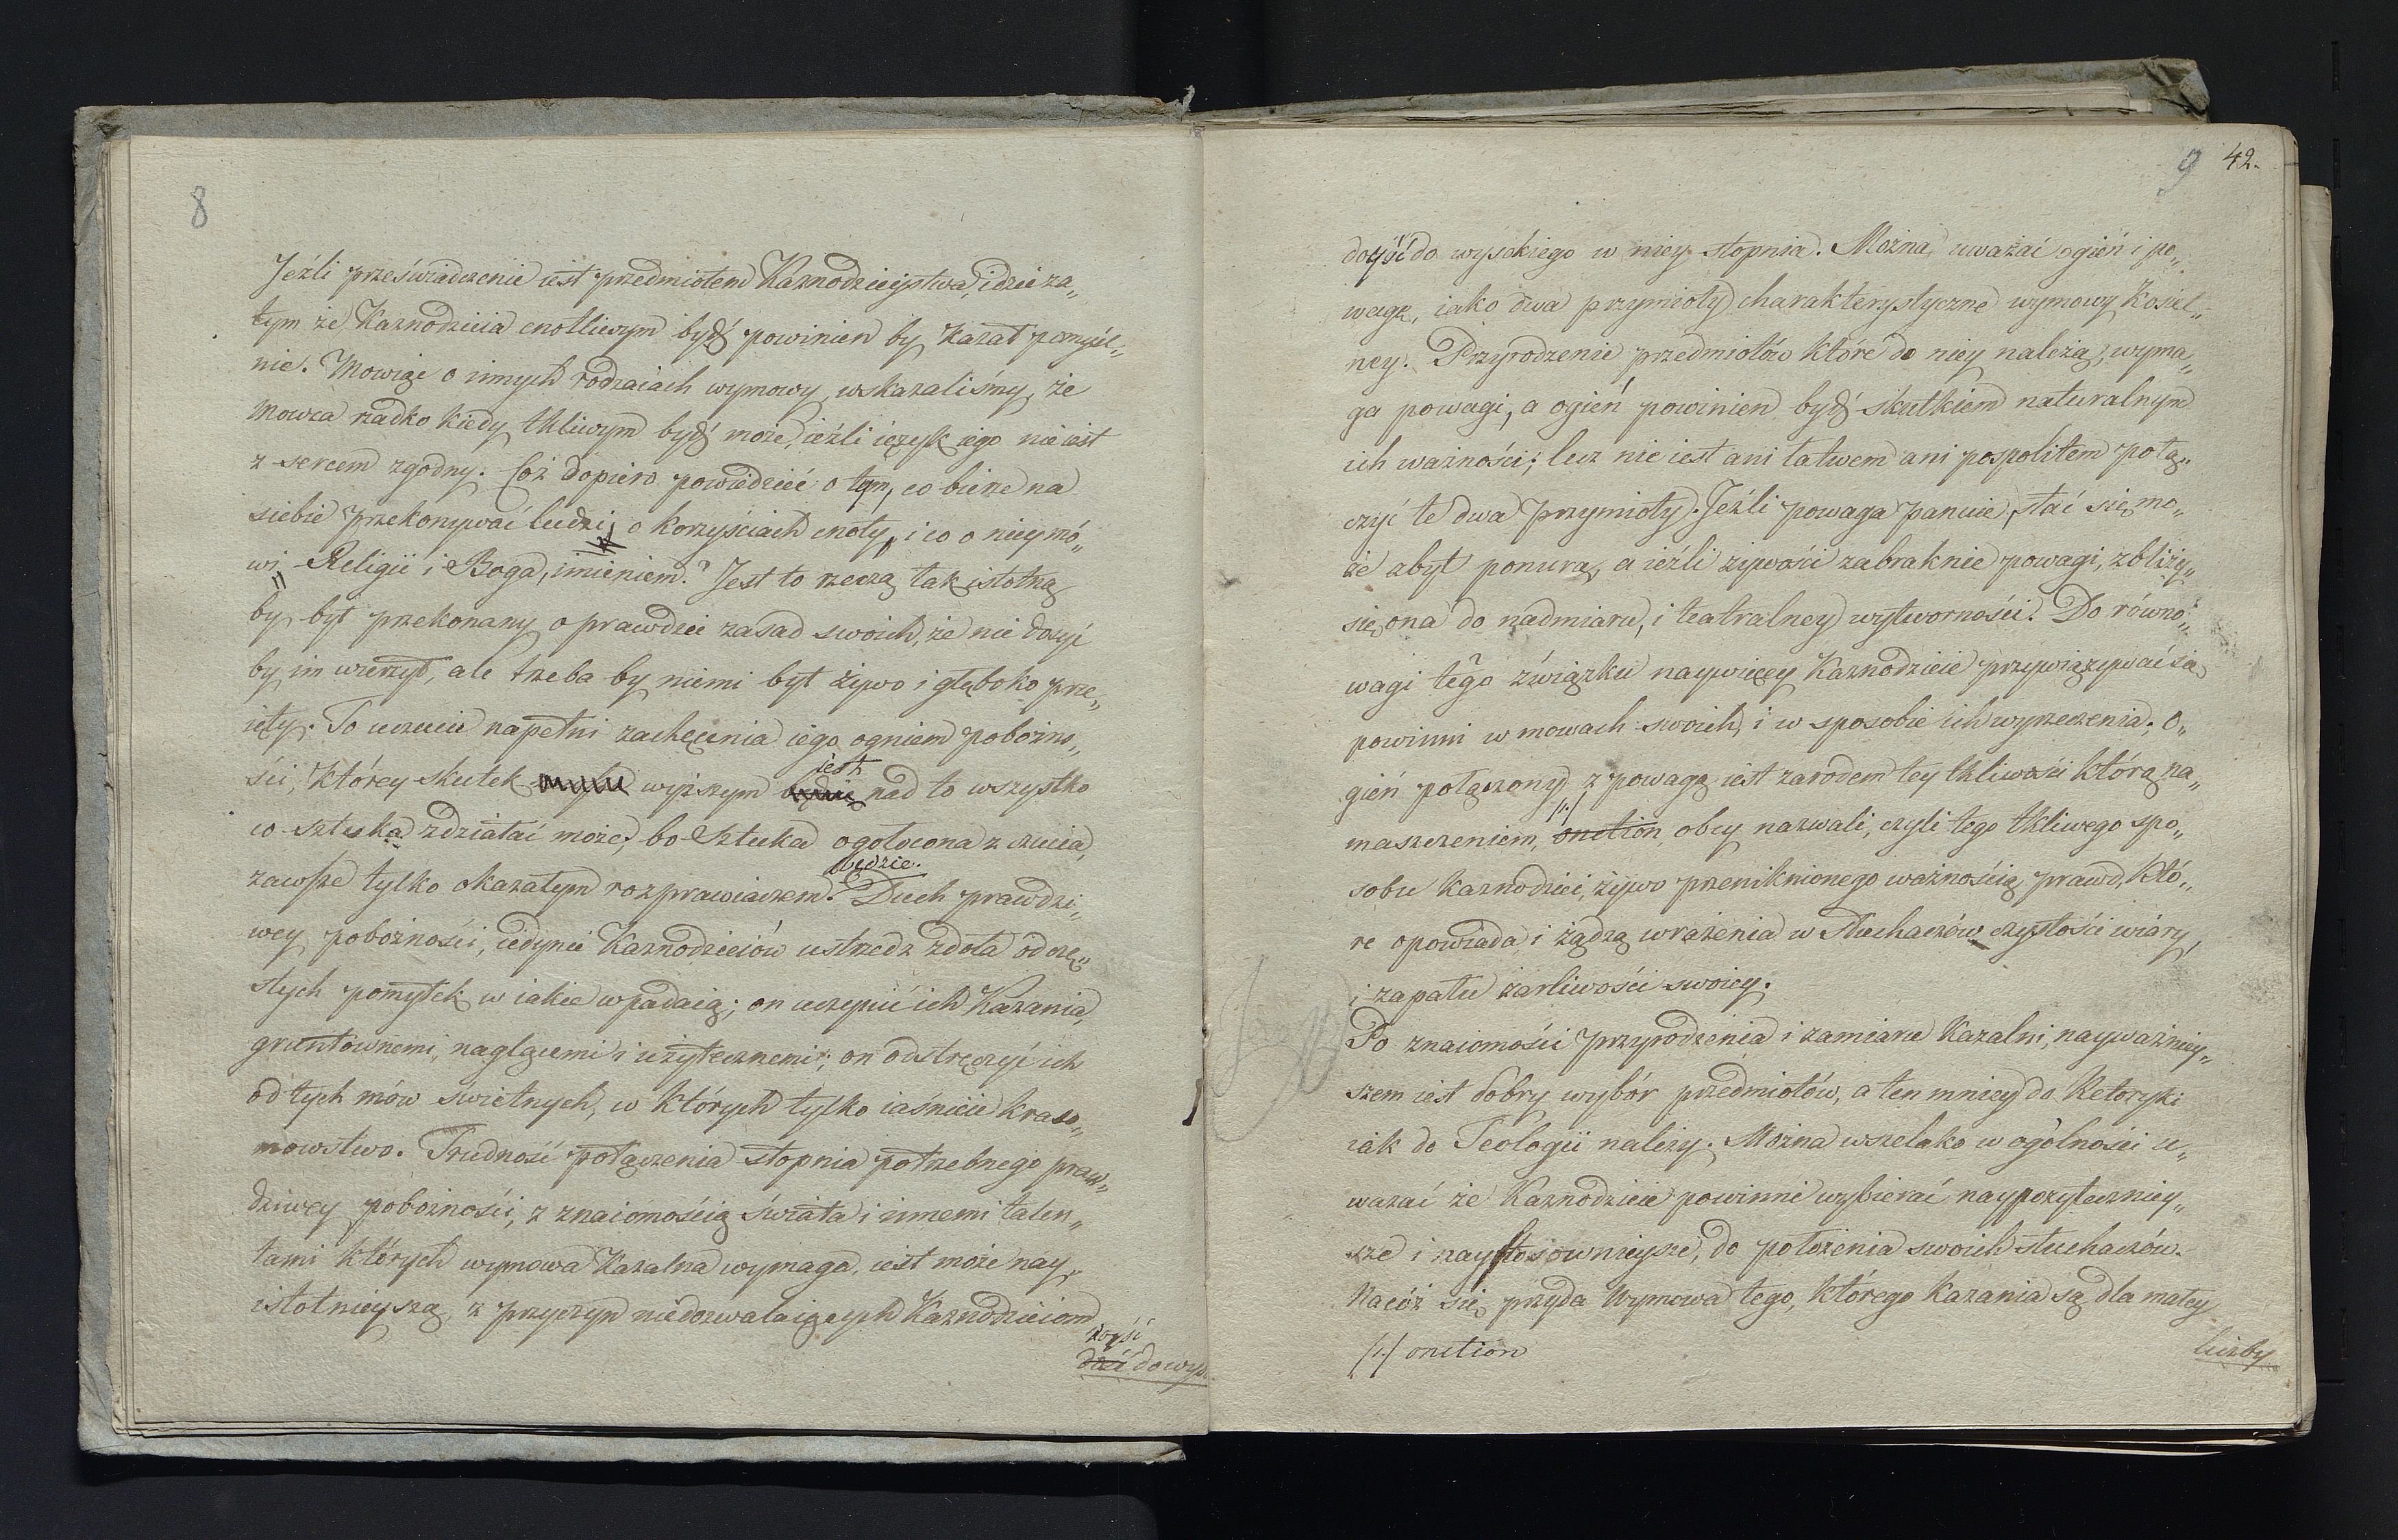 8
Jeźli przeświadczenie iest przedmiotem Kaznodzieystwa, idzie za„
tym że Kaznodzieia cnotliwym bydź powinien by kazał pomyśl„
nie. Mowiąc o innych rodzaiach wymowy, wskazaliśmy, że
mowca rzadko kiedy tkliwym bydź może, ieźli ięzyk iego nie iest
z sercem zgodny. Coż dopiero powiedzieć o tym, co bierze na
siebie przekonywać ludzi, o korzyściach cnoty, i co o niey mó„
wi Religii i Boga, imieniem? Jest to rzeczą tak istotną
by był przekonany o prawdzie zasad swoich, że nie dosyć
by im wierzył, ale trzeba by niemi był żywo i głęboko prze„
ięty. To uczucie napełni zachęcenia iego ogniem pobożno„
ści, którey skutek wyższym iest nad to wszystko
co sztuka zdziałać może, bo sztuka ogołocona z czucia,
zawsze tylko okazałym rozprawiaczem będzie. Duch prawdzi„
wey pobożności, iedynie Kaznodzieiów ustrzedz zdoła od czę„
stych pomyłek w iakie wpadaią; on uczynić ich Kazania,
gruntownemi, naglącemi i użytecznemi; on odstręczyć ich
od tych mów świetnych, w których tylko iaśnieie kraso„
mowstwo. Trudność połączenia stopnia potrzebnego praw„
dziwey pobożności, z znaiomością świata i innemi talen„
tami których wymowa Kazalna wymaga, iest może nay„
istotnieyszą, z przyczyn niedozwalaiących Kaznodzieiom
doyść
dość do wys.
9 42.
doyść do wysokiego w niey stopnia. Można uważać ogień i po„
wagę, iako dwa przymioty charakterystyczne wymowy Kościel„
ney. Przyrodzenie przedmiotów które do niey należą, wyma„
ga powagi, a ogień powinien bydź skutkiem naturalnym
ich ważności; lecz nie iest ani łatwem ani pospolitem połą„
czyć te dwa przymioty. Jeźli powaga panuie, stać się mo„
że zbyt ponurą, a ieźli żywości zabraknie powagi, zbliży„
się ona do nadmiaru, i teatralney wytworności. Do równo„
wagi tego związku naywięcey Kaznodzieie przywiązywać się
powinni w mowach swoich, i w sposobie ich wyrzeczenia; O„
gień połączony z powagą iest zarodem tey tkliwości którą na„
maszczeniem, /1/ onction, obcy nazwali, czyli tego tkliwego spo„
sobu kaznodziei, żywo przeniknionego ważnością prawd, któ„
re opowiada, i żądzą wrażenia w słuchaczów czystości wiary,
i zapału żarliwości swoiey.
Po znaiomości przyrodzenia i zamiaru Kazalni, nayważniey„
szem iest dobry wybór przedmiotów, a ten mniey do Retoryki
iak do Teologii należy. Można wszelako w ogólności u„
ważać że Kaznodzieie powinni wybierać naypożyteczniey„
sze i naystosownieysze, do położenia swoich słuchaczów.
Nacóż się przyda Wymowa tego, którego kazania są dla małey
/1/ onction
liczby